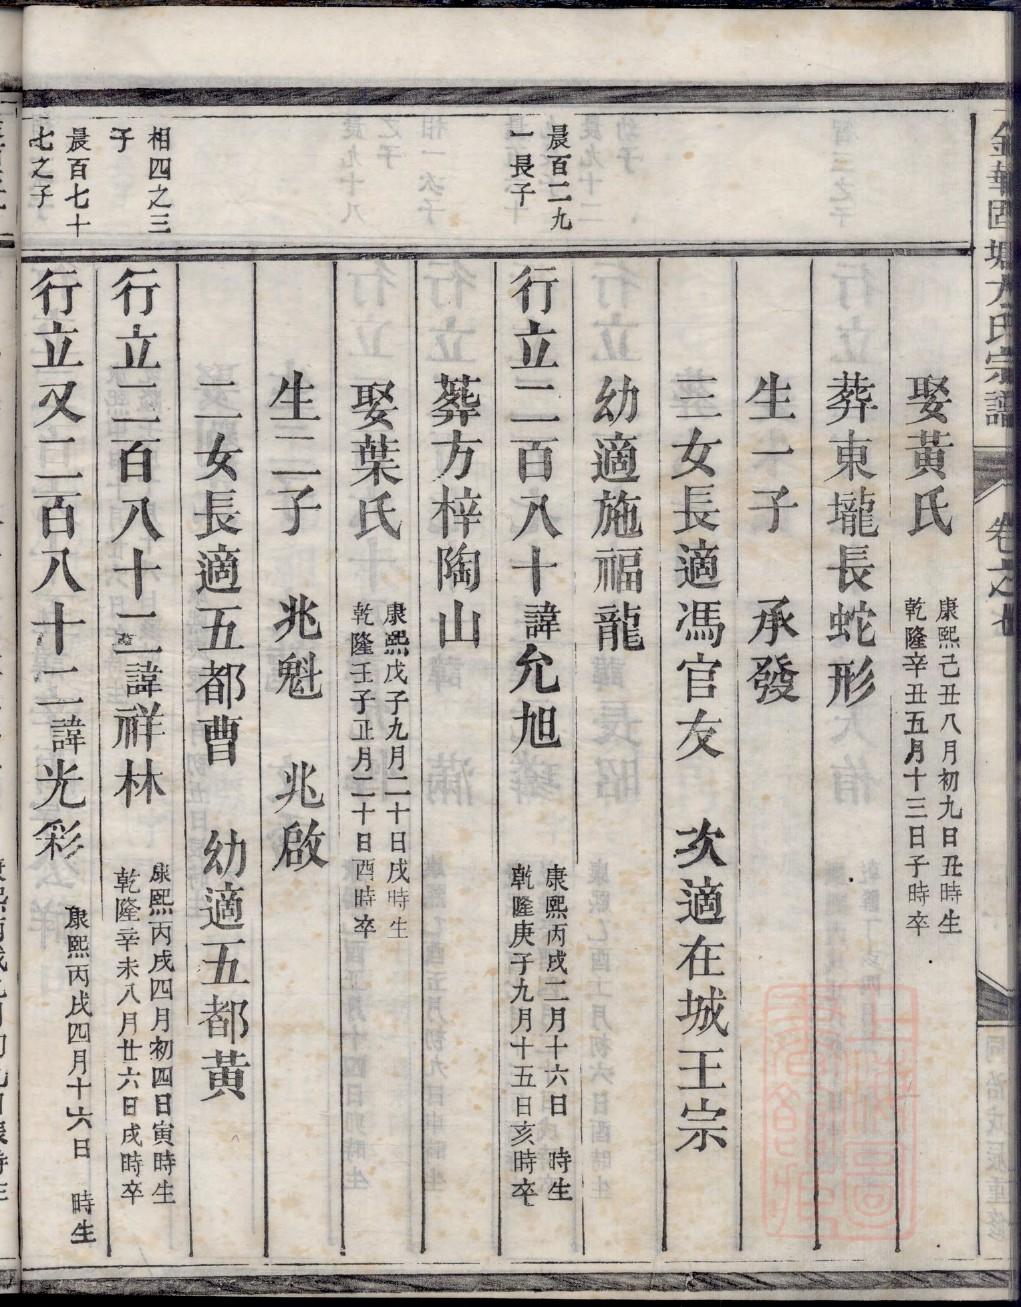 金華固塘方氏宗譜
卷之七
娶黃氏
康熙己丑八月初九日丑時生
乾隆辛丑五月十三日子時卒
葬東壠長蛇形
生一子 承發
三女長適馮官友 次適在城王宗
幼適施福龍
晨百二九
一長子
行立二百八十諱允旭
康熙丙戌二月十六日 時生
乾隆庚子九月十五日亥時卒
葬方梓陶山
娶葉氏
康熙戊子九月二十日戌時生
乾隆壬子正月二十日酉時卒
生二子 兆魁 兆啟
二女長適五都曹 幼適五都黃
相四之三
子
行立二百八十二諱祥林
康熙丙戌四月初四日寅時生
乾隆辛未八月廿六日戌時卒
晨百七十
七之子
行立又二百八十二諱光彩
康熙丙戌四月十六日 時生